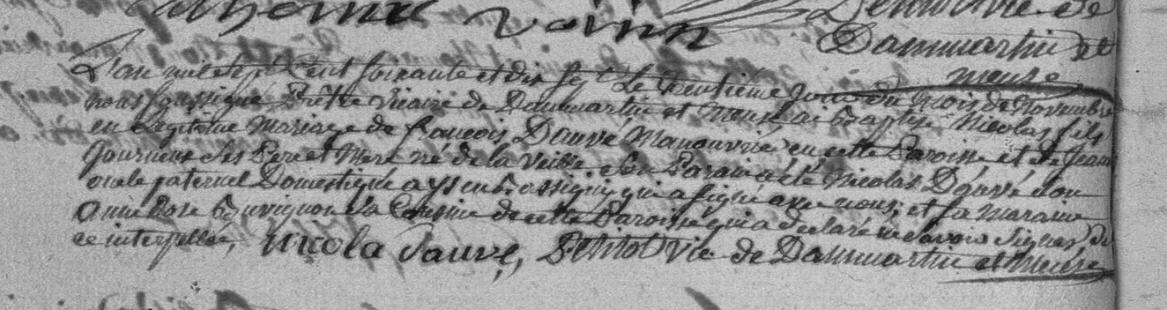 Catherine Voirin Petitot vic. de
Dammartin et
meuse
L'an mil sept cent soixante et dix sept le trentieme jour du mois de Novembre
nous soussigné Prêtre vicaire de Dammartin et Meuse ai baptisé Nicolas fils
en legitime Mariage de françois Dauvé Manouvrié en cette Paroisse et de Jeanne
ses Pere et Mere né de la veille. Son Parain a été Nicolas Dauvé son
oncle paternel Domestique a qui a signé avec nous, et sa Maraine
Anne sa Cousine de cette Paroisse qui a declaré ne savoir signer de
ce interpellée,
Nicola dauve, Petitot vic. de Dammartin et Meuse